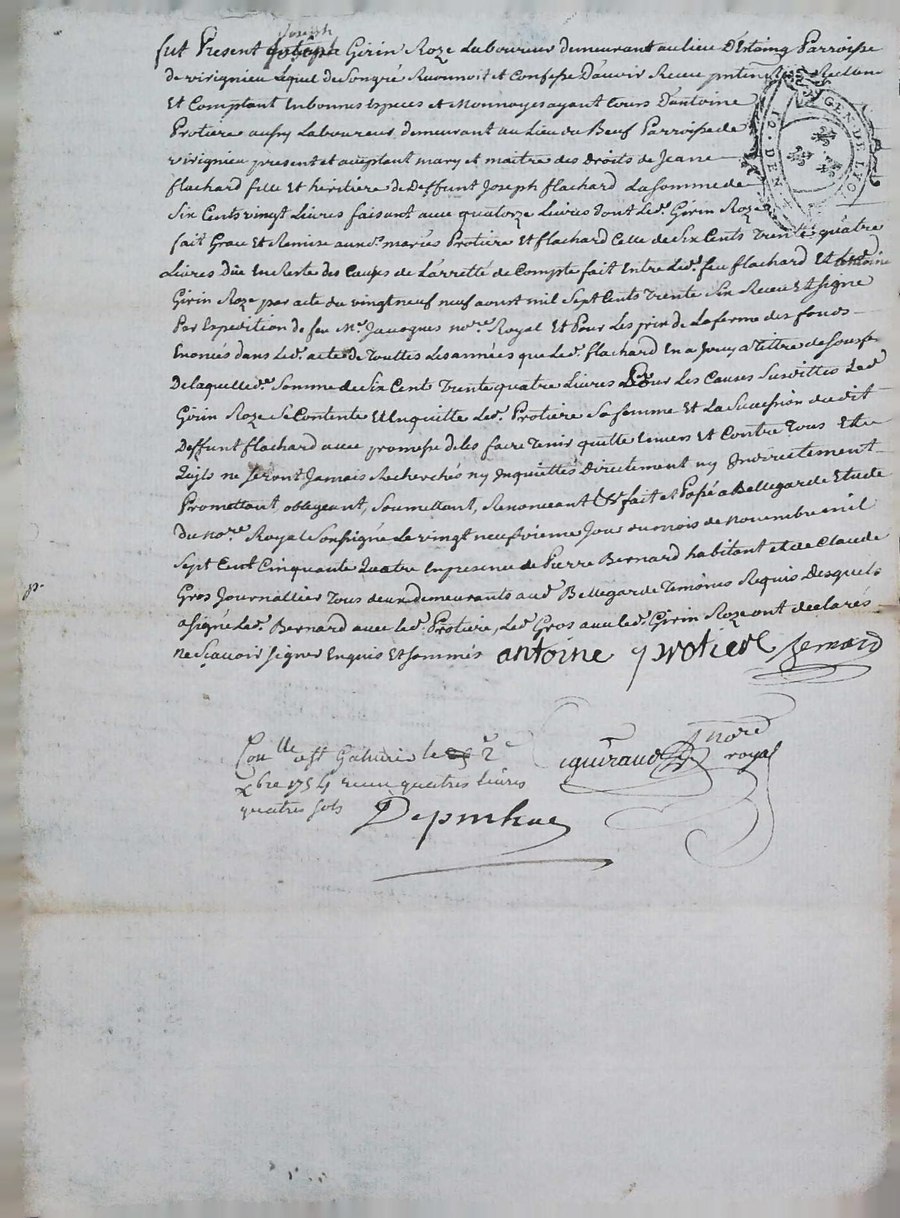 Joseph
fut Present Girin Roze Laboureur demeurant au lieu D'Estaing Parroisse
de virignieu Lequel de Son gré Reconnoit et Confesse D'avoir Receu Reellem
Et Comptant En bonnes Especes et Monnoyes ayant Cours D'antoine
Protiere aussy Laboureur demeurant au Lieu du Beuf Parroisse de
virignieu present et acceptant mary et maitre des Droits de Jeane
flachard fille Et heritiere de Deffunt Joseph flachard La Somme de
Six Cents vingt Livres faisant avec quatorze Livres dont Led. Girin Roze
fait Grace Et Remise auxd. mariés Protiere Et flachard Celle de Six Cents trente quatre
Livres Düe En Reste des Causes de L'arretté de Compte fait Entre Led. feu flachard Et led. antoine
Girin Roze par acte du vingt neuf neuf aoust mil Sept Cents trente Six Receu Et Signé
Par Expedition de feu Me. Jacoques nore. Royal Et Pour Les prix de La ferme des fonds
Enoncés dans Led. acte de Touttes Les années que Led. flachard En a Jouy a Tittre de Sousfe.
De laquelle de. Somme de Six Cents Trente quatre Livres Pour Les Causes Susdittes Led.
Girin Roze Se Contente Et Enquitte Led. Protiere Sa femme Et La Succession dudit
Deffunt flachard avec promesse de Les faire Tenir quitte Envers Et Contre Tous Et
Quils ne Seront Jamais Recherchés ny Inquiettés Directement ny Indirectement
Promettant, obligeant, Soumettant, Renonceant &c fait et Passé a Bellegarde Etude
Du nore. Royal Soussigné Le vingt neufvieme Jour du mois de Novembre mil
Sept Cent Cinquante Quatre En presence de Pierre Bernard habitant et de Claude
Gros Journallier Tous deux demeurants aud. Bellegarde Temoins Requis Desquels
a Signé Led. Bernard avec Led. Protiere, Led. Gros avec Led. Girin Roze ont declarés
ne Scavoir Signer Enquis Et Sommés antoine protiere Bernard
GEN. DE LYO
10. DEN
pr
Guiraud nore
royal
Conlle est Galmier le 2e
xbre 1754 receu quatres livres
quatres sols